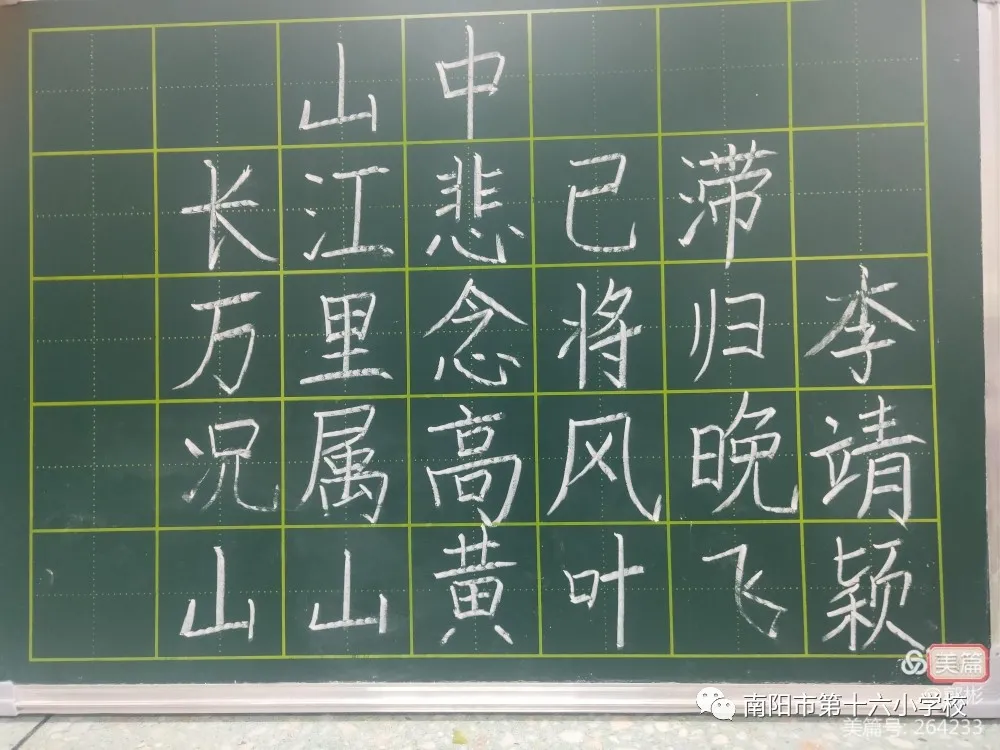 山中
长江悲已滞
万里念将归
况属高风晚
山山黄叶飞
李靖颖
美篇
南阳市第十六小学校
美篇号: 264233